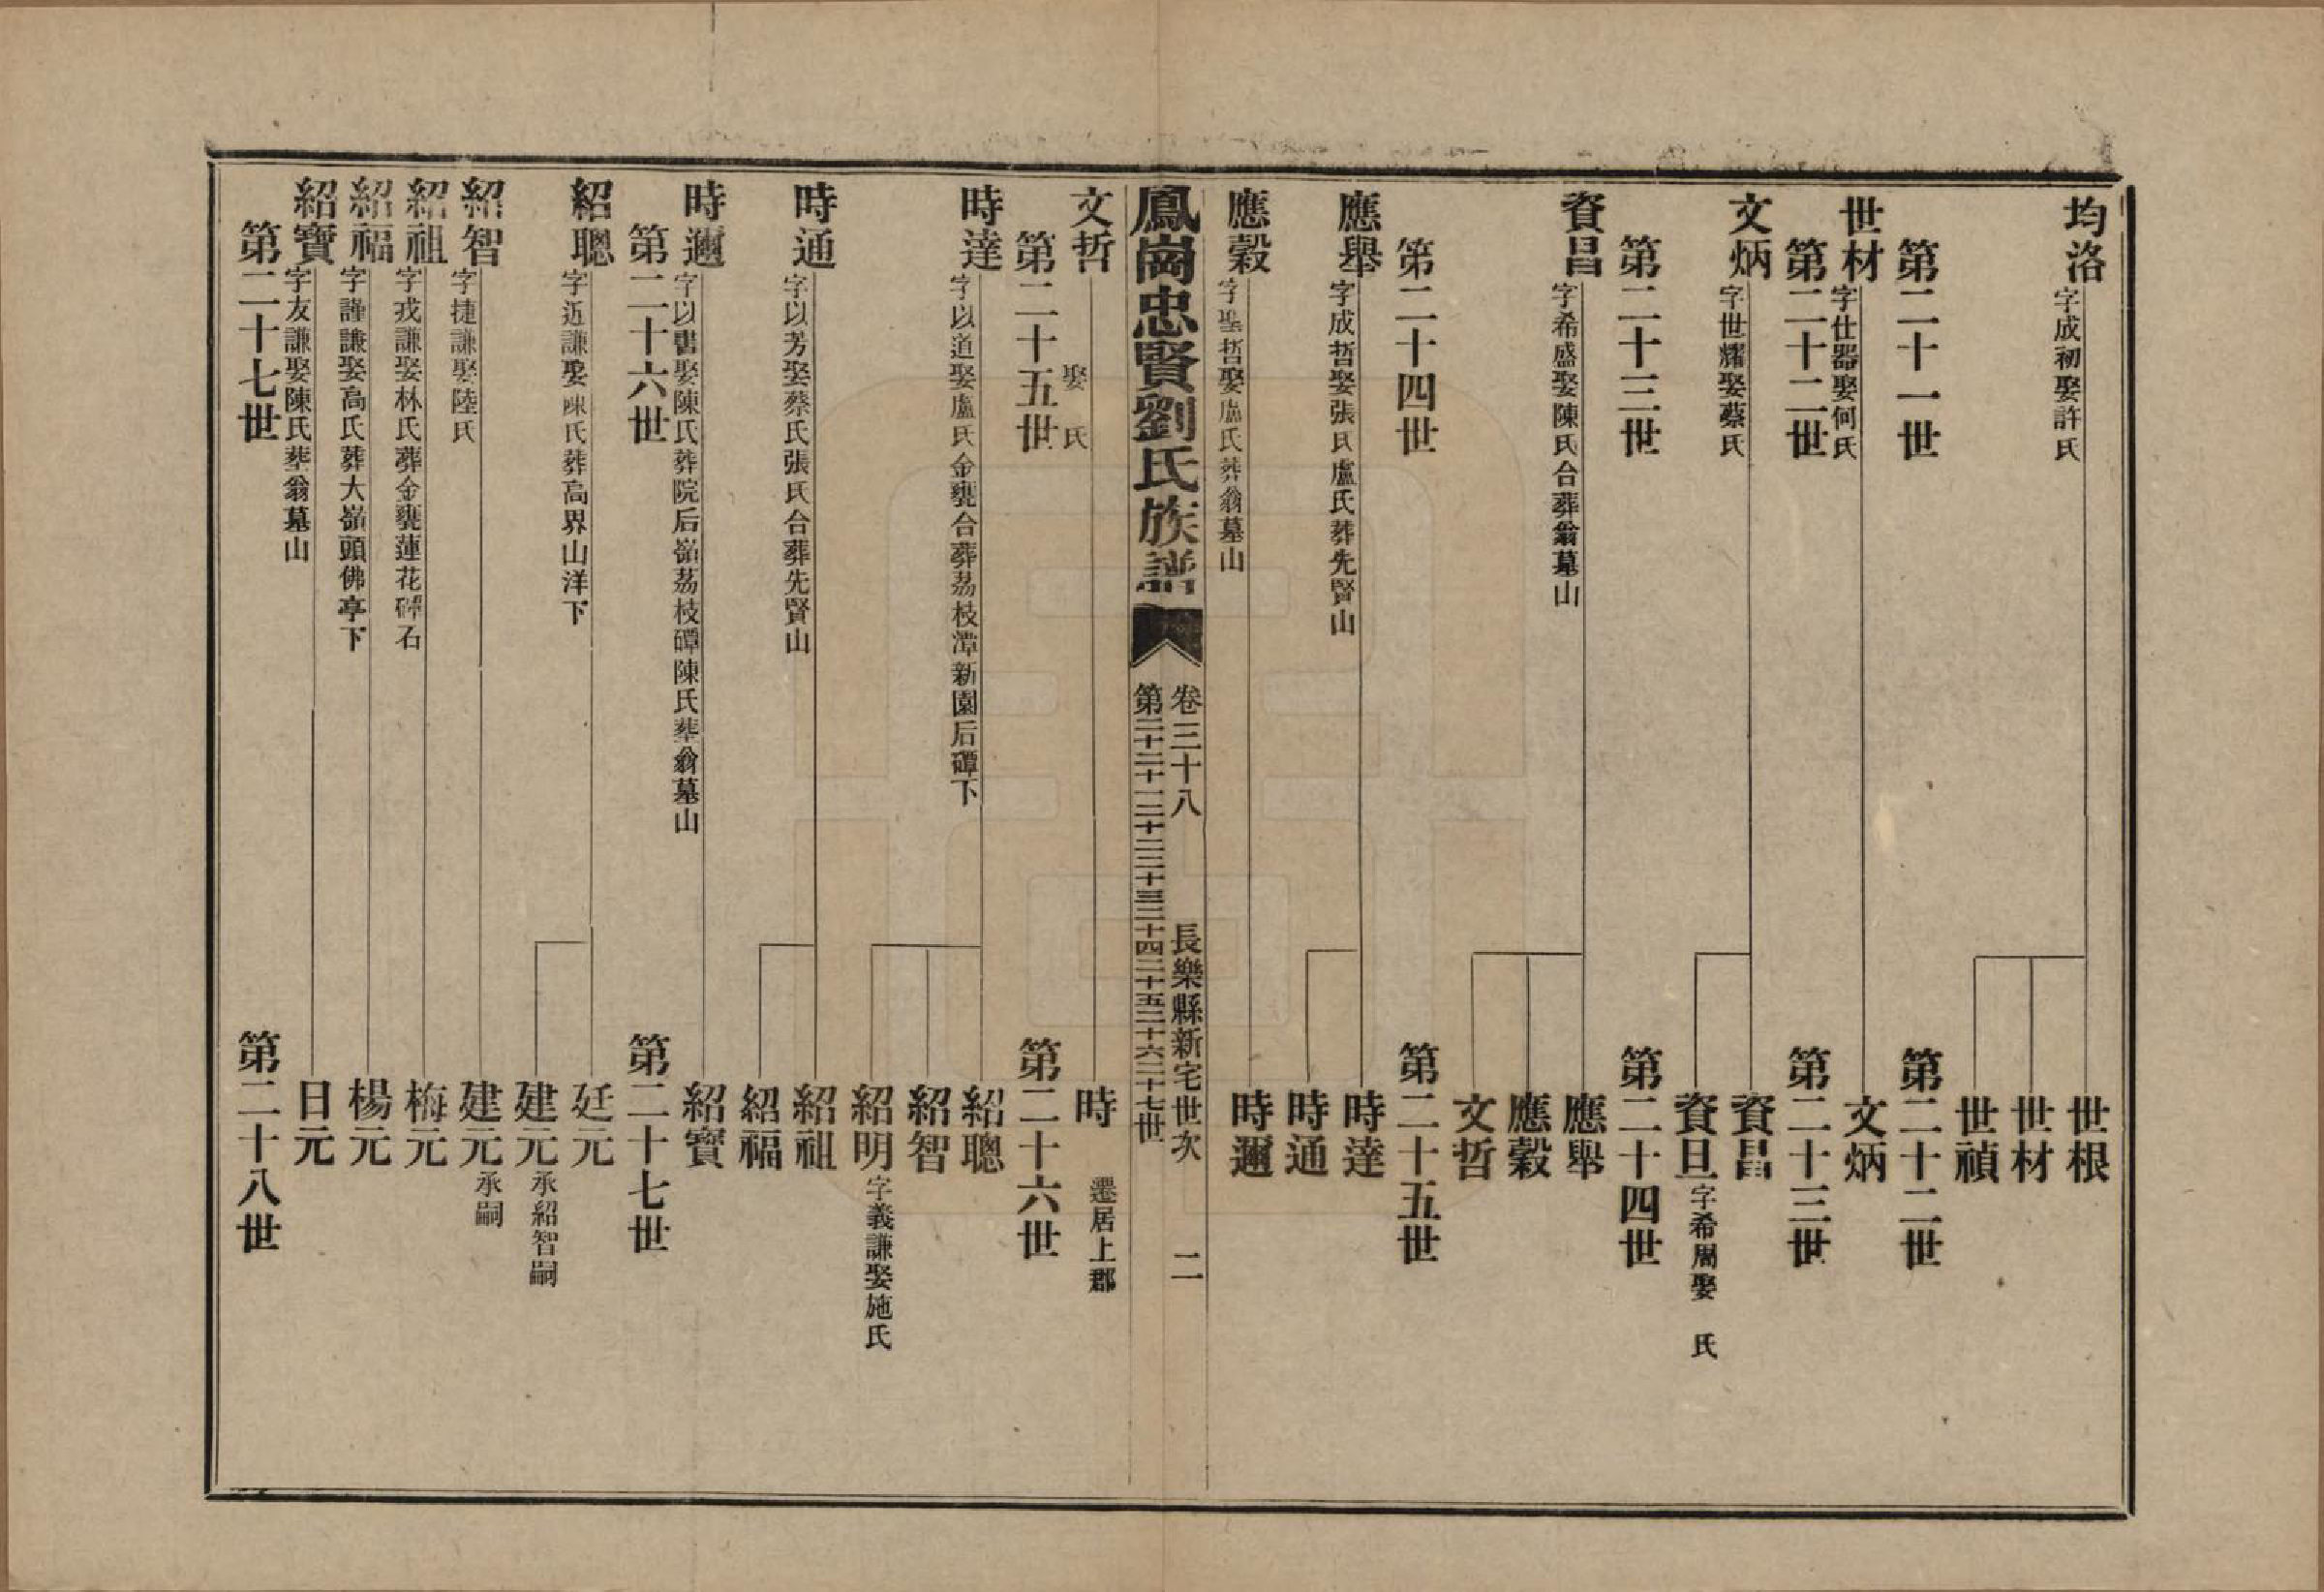 均洛 字成初娶許氏
世根
世材
世禎
第二十一世
第二十二世
世材 字仕器娶何氏
文炳
第二十二世
第二十三世
文炳 字世耀娶蔡氏
資昌
資旦 字希周娶　氏
第二十三世
第二十四世
資昌 字希盛娶陳氏台葬翁墓山
應舉
應穀
文哲
第二十四世
第二十五世
應舉 字成哲娶張氏盧氏葬先賢山
時達
時通
應穀 字聖哲娶盧氏葬翁墓山
時邇
鳳崗忠賢劉氏族譜
卷三十八　長樂縣新宅世次　二
第二十二十一二十二二十三二十四二十五二十六二十七世
文哲 娶　氏
時　遷居上郡
第二十五世
第二十六世
時達 字以道娶盧氏金甕台葬荔枝潭新園后磹下
紹聰
紹智
紹明 字義謙娶施氏
時通 字以芳娶蔡氏張氏台葬先賢山
紹祖
紹福
時邇 字以書娶陳氏葬院后嶺荔枝磹陳氏葬翁墓山
紹寶
第二十六世
第二十七世
紹聰 字近謙娶陳氏葬高界山洋下
廷元
建元 承紹智嗣
紹智 字捷謙娶陸氏
建元 承嗣
紹祖 字戎謙娶林氏葬金甕蓮花磹石
梅元
紹福 字謹謙娶高氏葬大嶺頭佛亭下
楊元
紹寶 字友謙娶陳氏葬翁墓山
日元
第二十七世
第二十八世